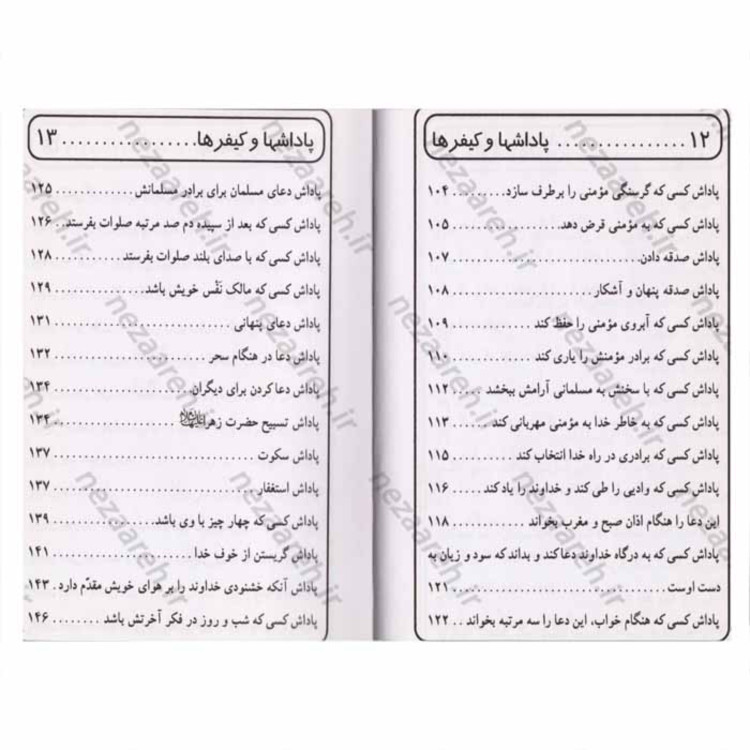 ۱۲ ................ پاداشها و کیفرها
پاداش کسی که گرسنگی مؤمنی را برطرف سازد ......... ۱۰۴
پاداش کسی که به مؤمنی قرض دهد ................ ۱۰۵
پاداش صدقه دادن ......................... ۱۰۷
پاداش صدقه پنهان و آشکار .................... ۱۰۸
پاداش کسی که آبروی مؤمنی را حفظ کند ............ ۱۰۹
پاداش کسی که برادر مؤمنش را یاری کند ............ ۱۱۰
پاداش کسی که با سخنش به مسلمانی آرامش ببخشد ..... ۱۱۲
پاداش کسی که به خاطر خدا به مؤمنی مهربانی کند ..... ۱۱۳
پاداش کسی که برادری در راه خدا انتخاب کند ........ ۱۱۵
پاداش کسی که وادیی را طی کند و خداوند را یاد کند ..... ۱۱۶
این دعا را هنگام اذان صبح و مغرب بخواند ........... ۱۱۸
پاداش کسی که به درگاه خداوند دعا کند و بداند که سود و زیان به
دست اوست ............................. ۱۲۱
پاداش کسی که هنگام خواب، این دعا را سه مرتبه بخواند .. ۱۲۲
پاداشها و کیفرها ................ ۱۳
پاداش دعای مسلمان برای برادر مسلمانش ............ ۱۲۵
پاداش کسی که بعد از سپیده دم صد مرتبه صلوات بفرستد .. ۱۲۶
پاداش کسی که با صدای بلند صلوات بفرستد .......... ۱۲۸
پاداش کسی که مالک نَفْس خویش باشد ............. ۱۲۹
پاداش دعای پنهانی ........................ ۱۳۱
پاداش دعا در هنگام سحر .................... ۱۳۲
پاداش دعا کردن برای دیگران .................. ۱۳۴
پاداش تسبیح حضرت زهرا ................... ۱۳۴
پاداش سکوت ........................... ۱۳۷
پاداش استغفار .......................... ۱۳۷
پاداش کسی که چهار چیز با وی باشد .............. ۱۳۹
پاداش گریستن از خوف خدا ................... ۱۴۱
پاداش آنکه خشنودی خداوند را بر هوای خویش مقدّم دارد . ۱۴۳
پاداش کسی که شب و روز در فکر آخرتش باشد ........ ۱۴۶
nezaareh.ir